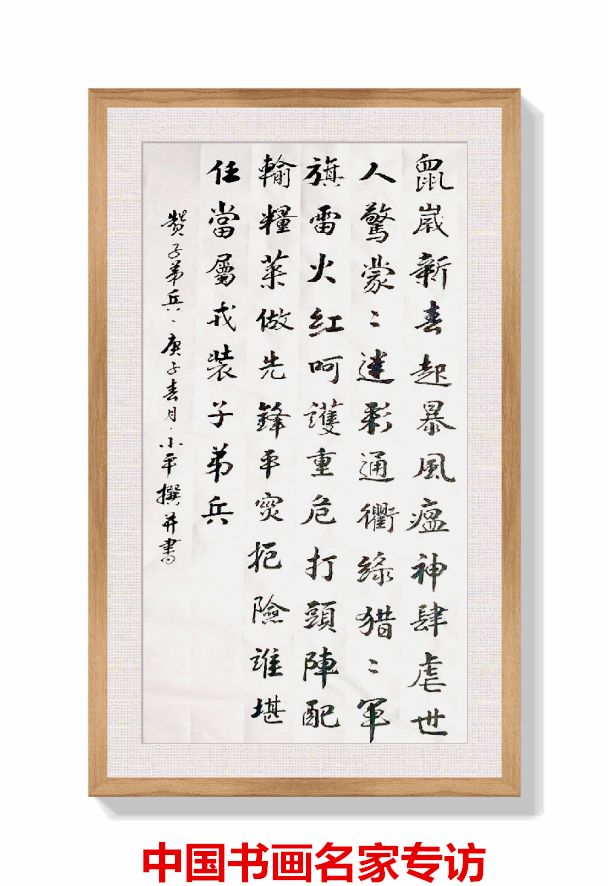 鼠嵗新春起暴風瘟神肆虐世
人驚蒙〻迷彩通衢綠猎〻軍
旗雷火紅呵護重危打頭陣配
輸糧菜做先鋒平灾扼險誰堪
任當屬戎裝子弟兵
贊子弟兵 庚子春月 小平撰并書
中国书画名家专访